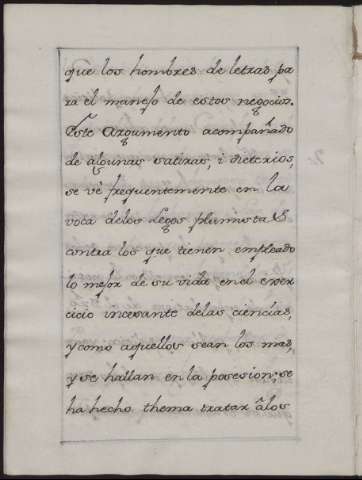 que los hombres de letras pa
ra el manejo de estos negocios.
Este Argumento acompañado
de algunas satiras, i dicterios,
se vé frequentemente en la
vota delos Legos plumistas
contra los que tienen empleado
lo mejor de su vida en el exer
cicio incesante delas ciencias,
y como aquellos sean los mas,
y se hallan en la posesion; se
ha hecho thema tratar âlos